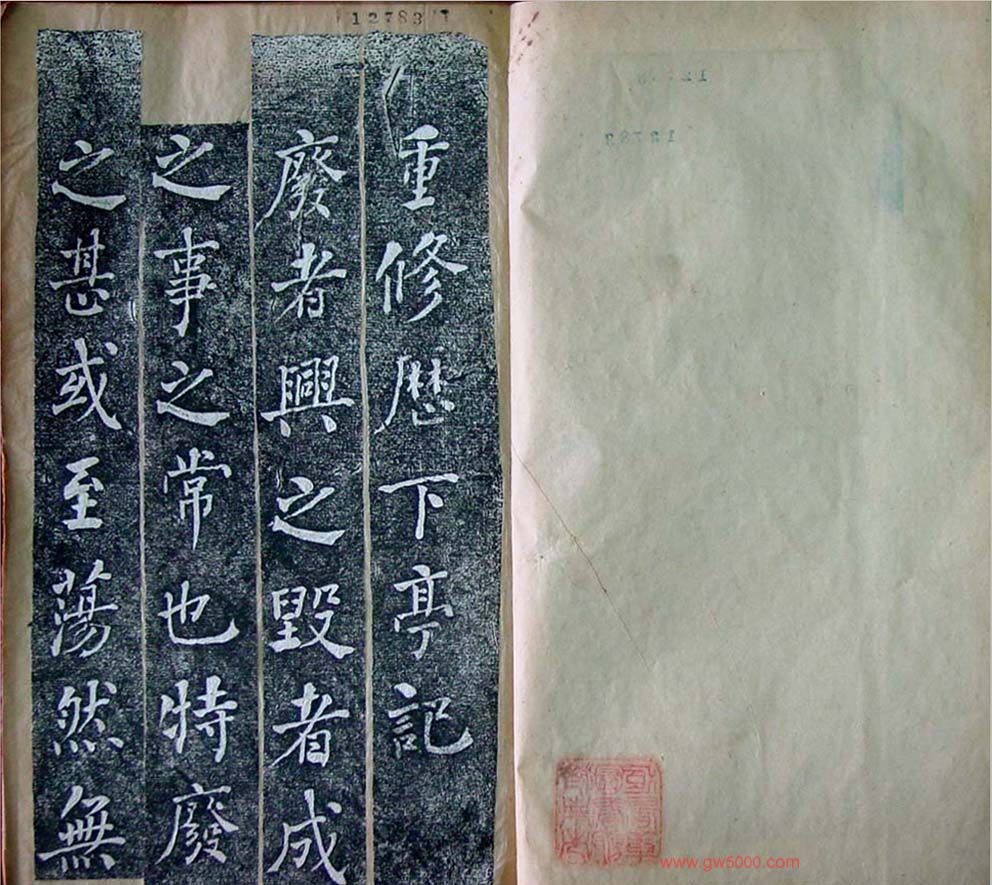 12783
重修歷下亭記
廢者興之毀者成
之事之常也特廢
之甚或至蕩然無
www.gw5000.com